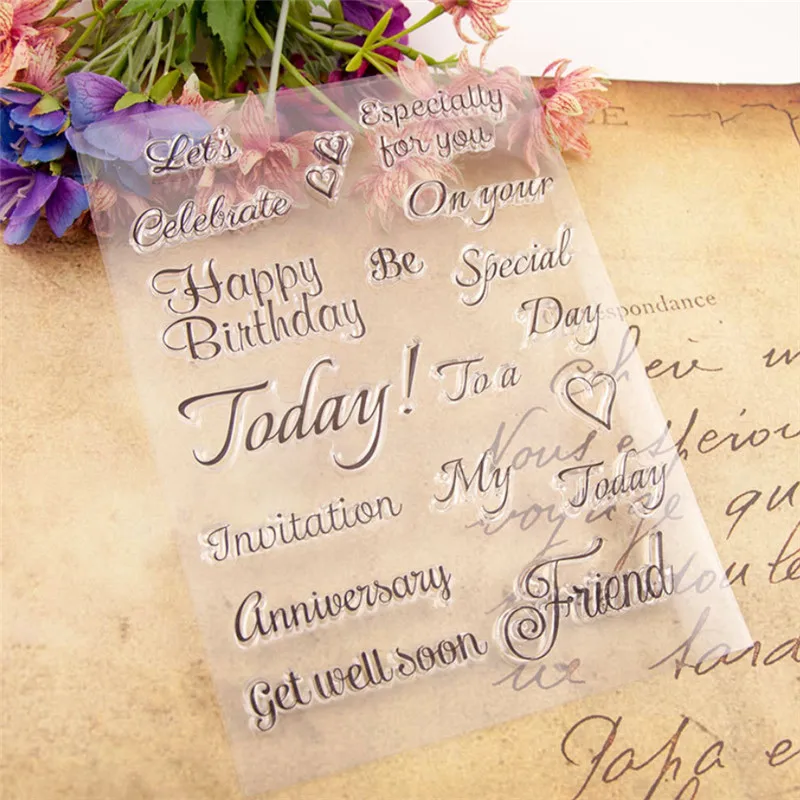 Let's
Especially
for you
Celebrate
On your
Happy
Birthday
Be
Special
Day
Today!
To a
My
Today
Invitation
Anniversary
Friend
Get well soon
Nous espérou
voyage qu
Papa e